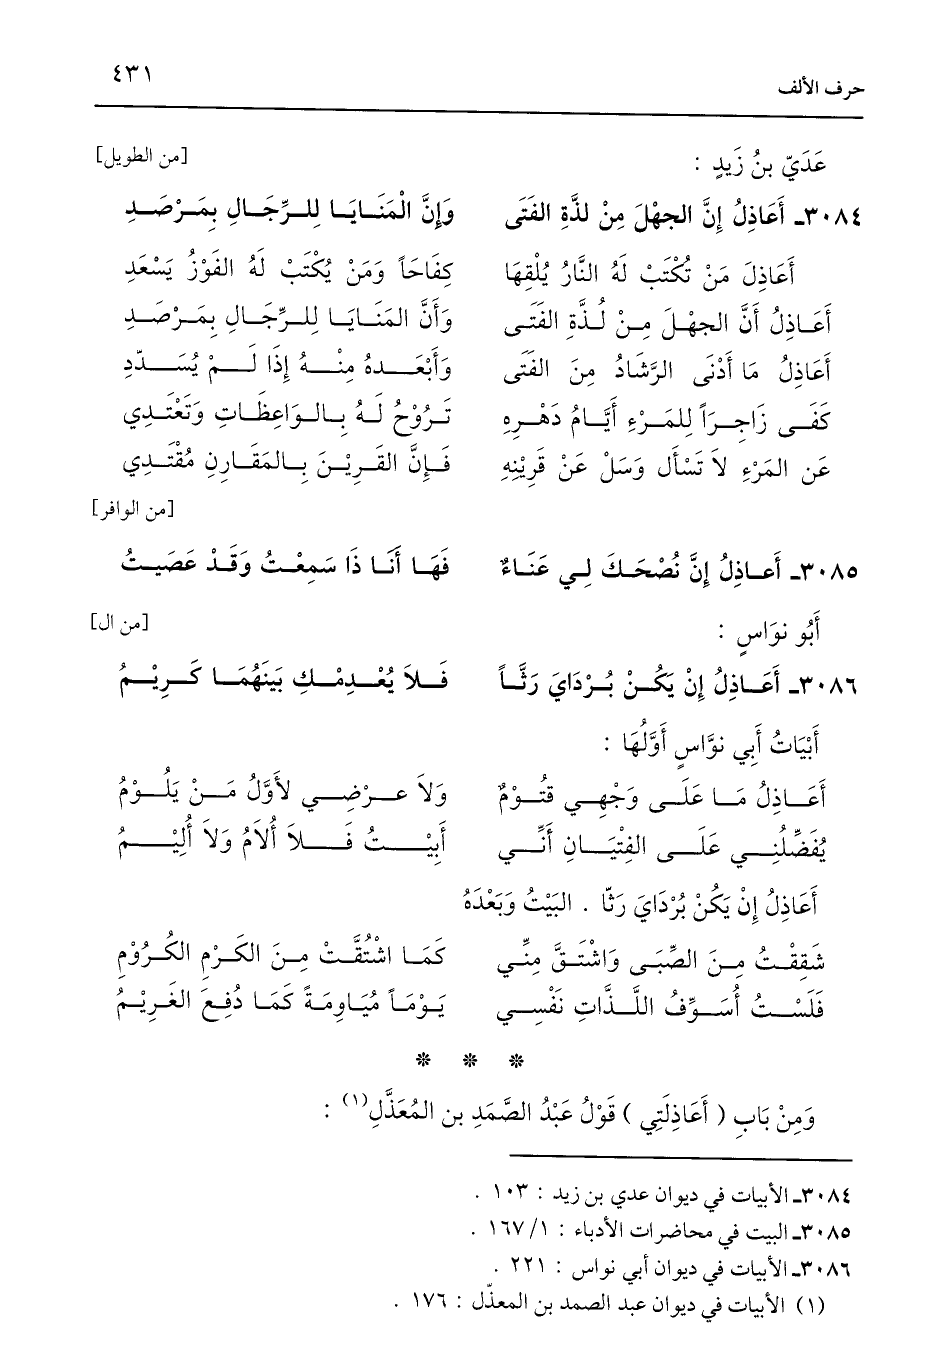 حرف الألف ٤٣١
عَدَيّ بنُ زَيدٍ : [من الطويل]
٣٠٨٤ـ أَعَاذِلُ إِنَّ الجهْلَ مِنْ لذَّةِ الفَتَى وَإِنَّ الْمَنَايَا لِلرِّجَالِ بِمَرْصَدِ
أَعَاذِلَ مَنْ تُكْتَبْ لَهُ النَّارُ يُلْقِهَا كِفَاحَاً وَمَنْ يُكْتَبْ لَهُ الفَوْزُ يَسْعَدِ
أَعَاذِلُ أَنَّ الجهْلَ مِنْ لُذَّةِ الفَتَى وَأَنَّ المَنَايَا لِلرِّجَالِ بِمَرْصَدِ
أَعَاذِلُ مَا أَدْنَى الرَّشَادُ مِنَ الفَتَى وَأَبْعَدهُ مِنْهُ إِذَا لَمْ يُسَدّدِ
كَفَى زَاجِرَاً لِلمَرْءِ أَيَّامُ دَهْرِهِ تَرُوْحُ لَهُ بِالوَاعِظَاتِ وَتَغْتَدِي
عَن المَرْءِ لاَ تَسْأَل وَسَلْ عَنْ قَرِيْنِهِ فَإِنَّ القَرِيْنَ بِالمَقَارنِ مُقْتَدِي
[من الوافر]
٣٠٨٥ـ أَعاذِلُ إِنَّ نُصْحَكَ لِي عَنَاءٌ فَهَا أَنَا ذَا سَمِعْتُ وَقَدْ عَصَيتُ
أَبُو نوَاسٍ : [من ال]
٣٠٨٦ـ أَعَاذِلُ إِنْ يَكُنْ بُرْدَايَ رَثَّاً فَلاَ يُعْدِمْكِ بَينَهُمَا كَرِيْمُ
أَبْيَاتُ أَبِي نوَّاسٍ أَوَّلُهَا :
أَعَاذِلُ مَا عَلَى وَجْهِي قتُوْمٌ وَلاَ عرْضِي لأَوَّلُ مَنْ يَلُوْمُ
يُفَضِّلُنِي عَلَى الفِتْيَانِ أَنِّي أَبِيْتُ فَلاَ أُلاَمُ وَلاَ أُلِيْمُ
أَعَاذِلُ إِنْ يَكُنْ بُرْدَايَ رَثّا . البَيْتُ وَبَعْدَهُ
شَقِقْتُ مِنَ الصِّبَى وَاشْتَقَّ مِنِّي كَمَا اشْتُقَّتْ مِنَ الكَرْمِ الكُرُوْمِ
فَلَسْتُ أُسَوِّفُ اللَّذَّاتِ نَفْسِي يَوْمَاً مُيَاوِمَةً كَمَا دُفِعَ الغَرِيْمُ
* * *
وَمِنْ بَابِ ( أَعَاذِلَتِي ) قَوْلُ عَبْدُ الصَّمَدِ بن المُعَذَّلِ(١) :
٣٠٨٤ـ الأبيات في ديوان عدي بن زيد : ١٠٣ .
٣٠٨٥ـ البيت في محاضرات الأدباء : ١/ ١٦٧ .
٣٠٨٦ـ الأبيات في ديوان أبي نواس : ٢٢١ .
(١) الأبيات في ديوان عبد الصمد بن المعذّل : ١٧٦ .